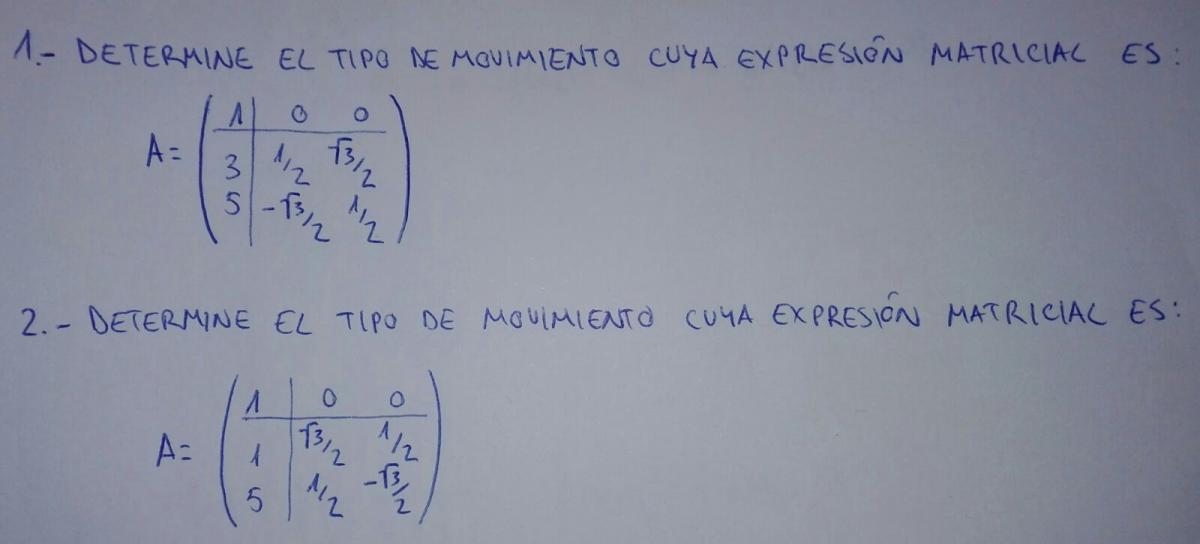 1.- DETERMINE EL TIPO DE MOVIMIENTO CUYA EXPRESIÓN MATRICIAL ES:
1 0 0
A= 3 1/2 √3/2
5 -√3/2 1/2
2.- DETERMINE EL TIPO DE MOVIMIENTO CUYA EXPRESIÓN MATRICIAL ES:
1 0 0
A= 1 √3/2 1/2
5 1/2 -√3/2